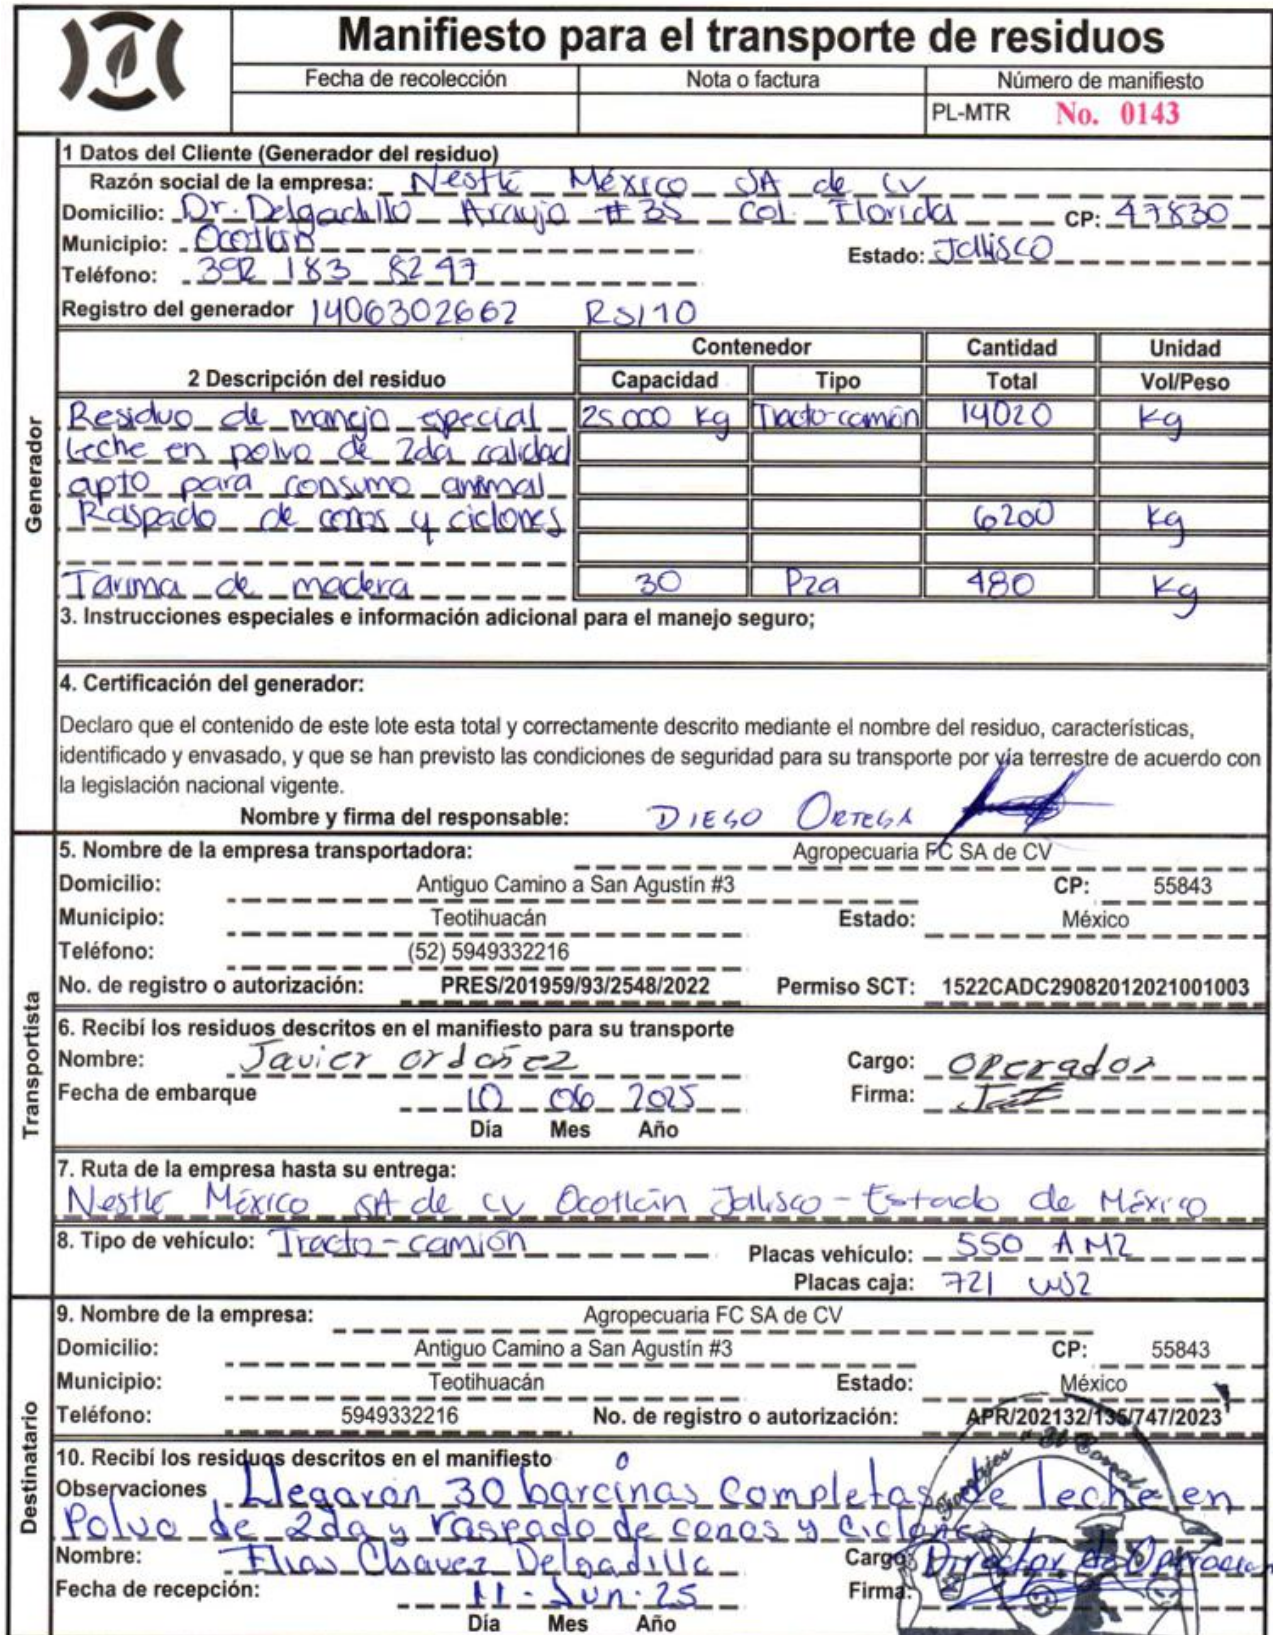 Manifiesto para el transporte de residuos
Fecha de recolección Nota o factura Número de manifiesto
PL-MTR No. 0143
Generador
1 Datos del Cliente (Generador del residuo)
Razón social de la empresa: Nestlé México SA de CV
Domicilio: Dr. Delgadillo Araujo #35 Col. Florida CP: 47830
Municipio: Ocotlán Estado: Jalisco
Teléfono: 392 183 8247
Registro del generador 1406302662 RSI10
Contenedor Cantidad Unidad
2 Descripción del residuo Capacidad Tipo Total Vol/Peso
Residuo de manejo especial 25 000 Kg Tracto-camión 14020 Kg
Leche en polvo de 2da calidad
apto para consumo animal
Raspado de conos y ciclones 6200 Kg
Tarima de madera 30 Pza 480 Kg
3. Instrucciones especiales e información adicional para el manejo seguro;
4. Certificación del generador:
Declaro que el contenido de este lote esta total y correctamente descrito mediante el nombre del residuo, características,
identificado y envasado, y que se han previsto las condiciones de seguridad para su transporte por vía terrestre de acuerdo con
la legislación nacional vigente.
Nombre y firma del responsable: DIEGO ORTEGA
Transportista
5. Nombre de la empresa transportadora: Agropecuaria FC SA de CV
Domicilio: Antiguo Camino a San Agustín #3 CP: 55843
Municipio: Teotihuacán Estado: México
Teléfono: (52) 5949332216
No. de registro o autorización: PRES/201959/93/2548/2022 Permiso SCT: 1522CADC29082012021001003
6. Recibí los residuos descritos en el manifiesto para su transporte
Nombre: Javier ordoñez Cargo: Operador
Fecha de embarque 10 06 2025 Firma:
Día Mes Año
7. Ruta de la empresa hasta su entrega:
Nestlé México SA de CV Ocotlán Jalisco - Estado de México
8. Tipo de vehículo: Tracto-camión Placas vehículo: 550 AM2
Placas caja: 721 WS2
Destinatario
9. Nombre de la empresa: Agropecuaria FC SA de CV
Domicilio: Antiguo Camino a San Agustín #3 CP: 55843
Municipio: Teotihuacán Estado: México
Teléfono: 5949332216 No. de registro o autorización: APR/202132/135/747/2023
10. Recibí los residuos descritos en el manifiesto
Observaciones Llegarón 30 barcinas Completas de leche en
Polvo de 2da y raspado de conos y Ciclones
Forrajes El Corral
Nombre: Elias Chavez Delgadillo Cargo: Director de Operacion
Fecha de recepción: 11-Jun-25 Firma:
Día Mes Año